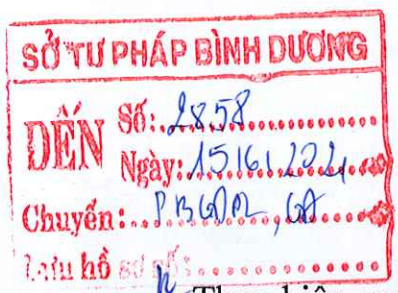 SỞ TƯ PHÁP BÌNH DƯƠNG
ĐẾN
Số: 2858
Ngày: 15/6/2021
Chuyển:
Lưu hồ sơ số: